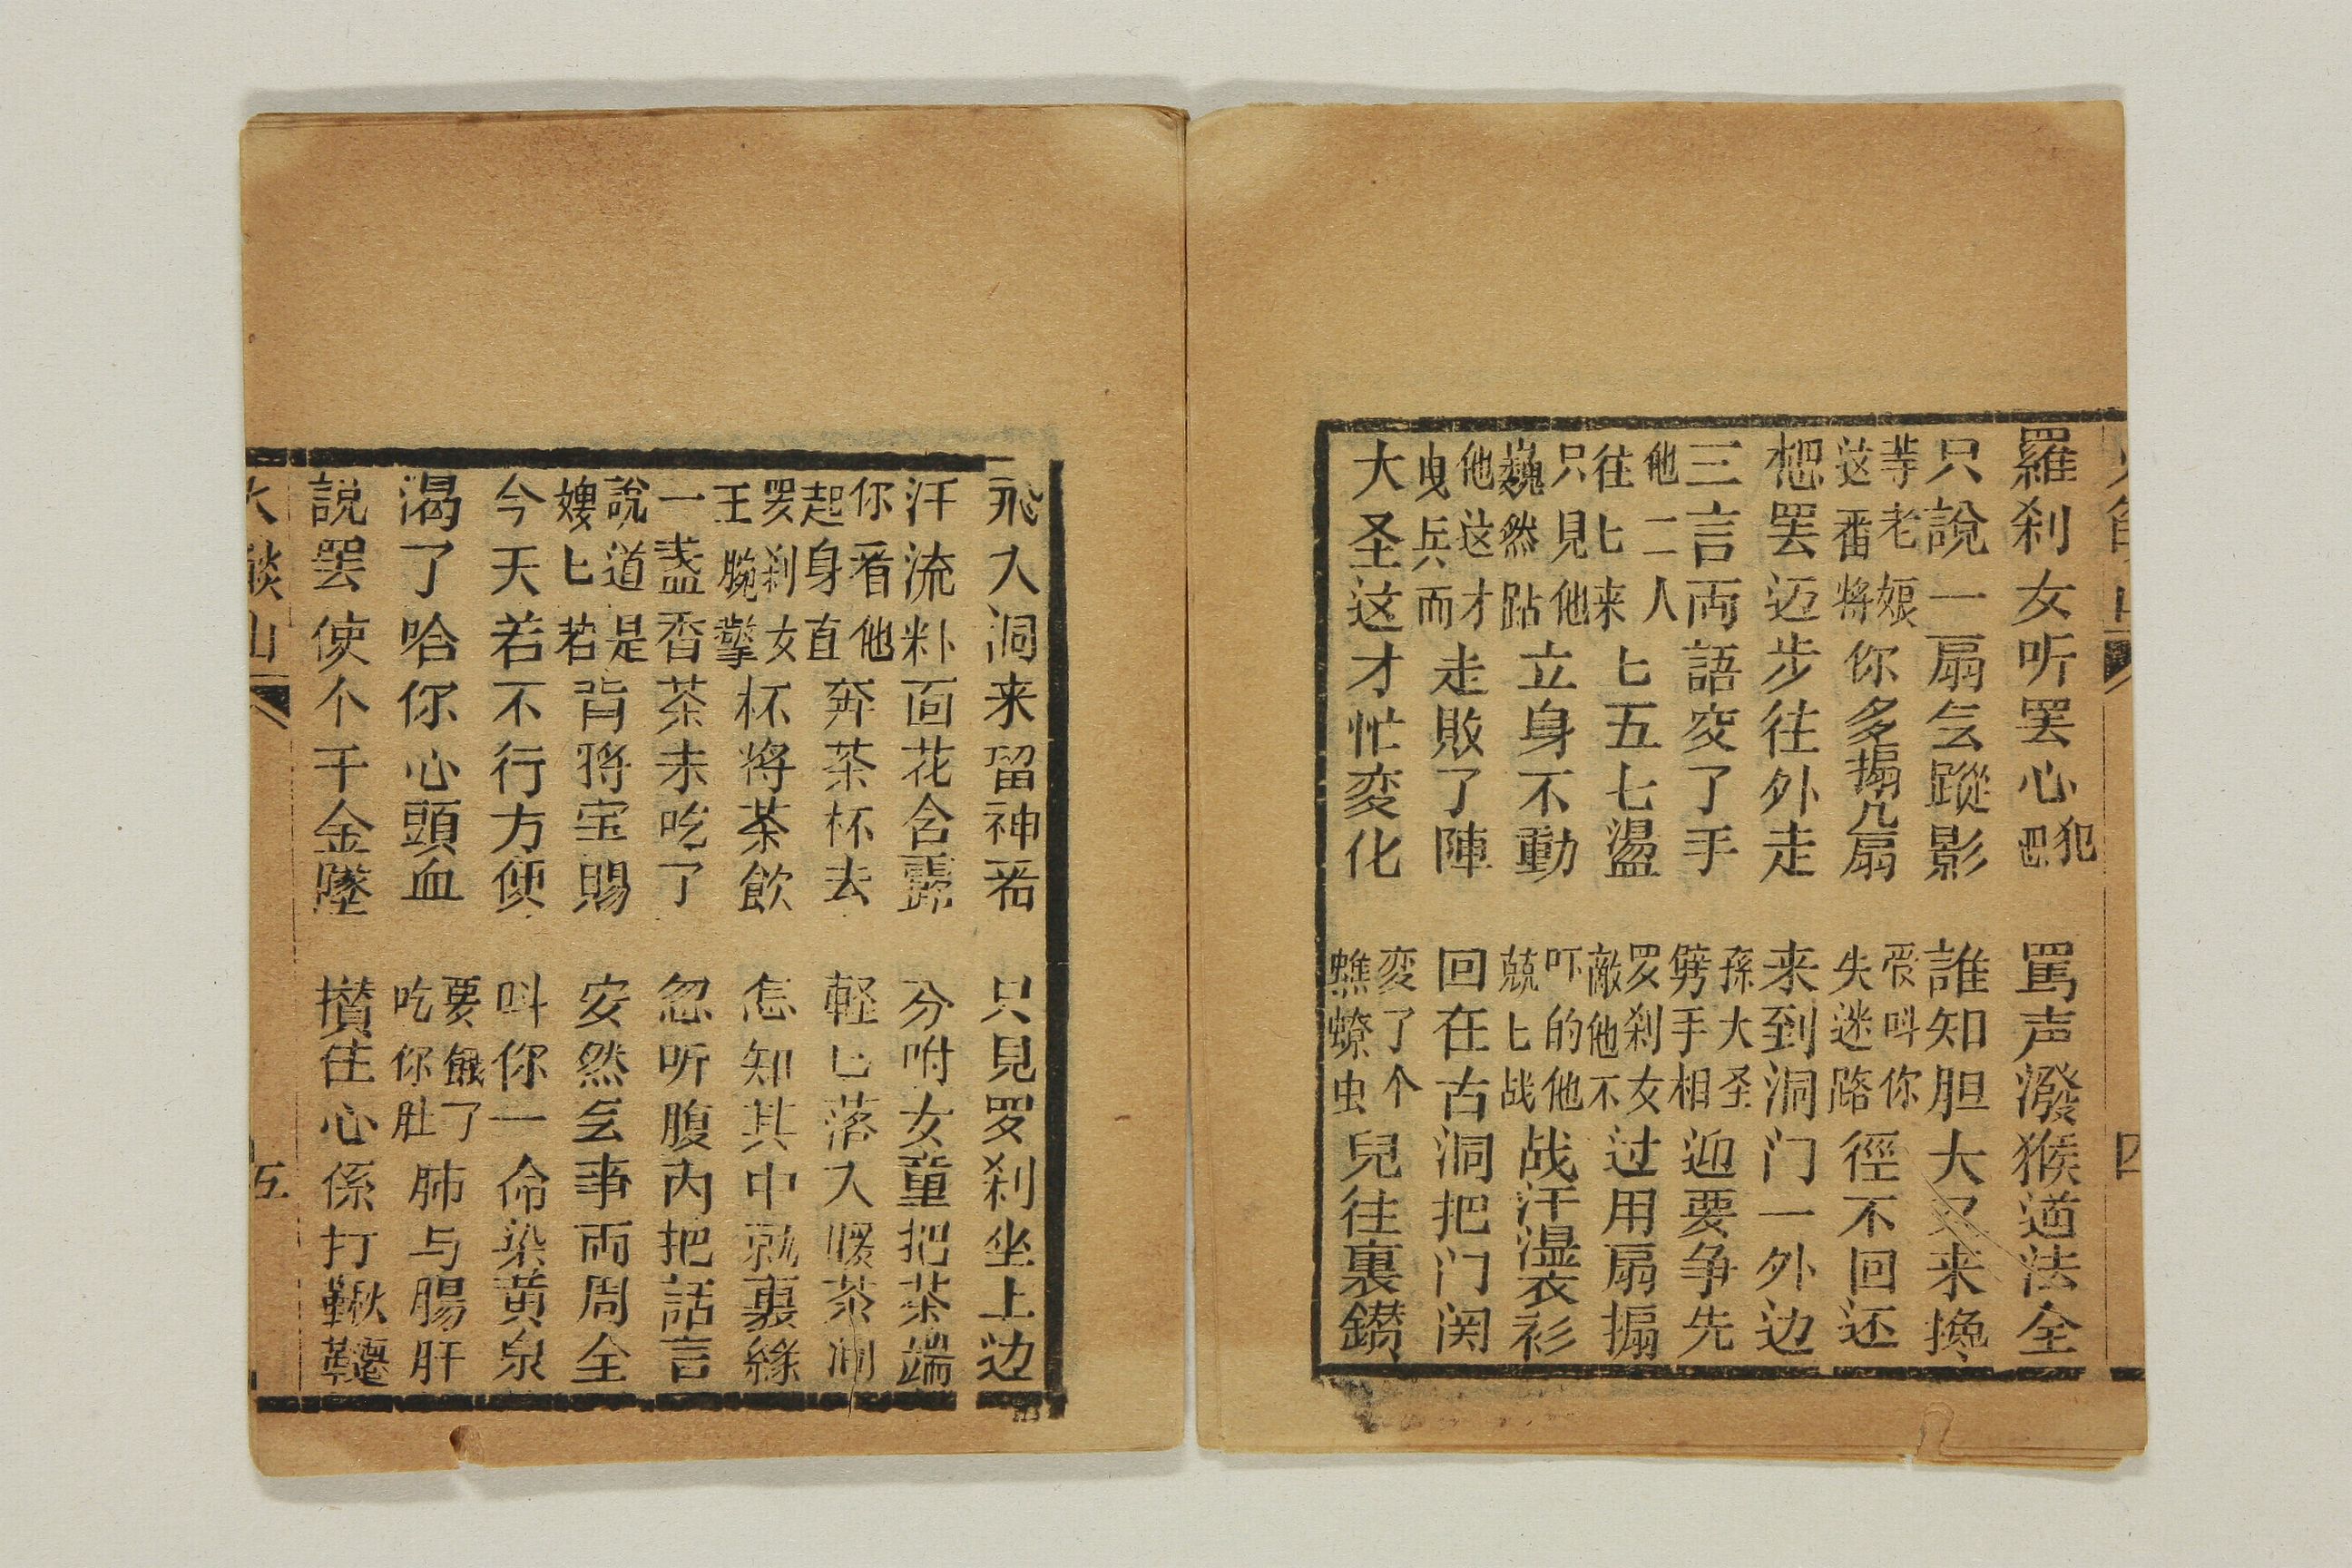 羅刹女听罢心犯 罵声潑猴道法全
只說一扇无蹤影 誰知胆大又来搀
等老娘这番将你多搧几扇 叫你失迷路徑不回还
想罢迈步往外走 来到洞门一外边
三言両語交了手 孫大圣劈手相迎要争先
他二人往匕来匕五七盪 罗刹女敵他不过用扇搧
只見他巍然跕立身不動 吓的他兢匕战战汗湿衣衫
他这才曳兵而走敗了陣 回在古洞把门関
大圣这才忙变化 变了个蟭蟟虫兒往裏鑚
四
飛入洞来留神看 只見罗刹坐上边
汗流粉面花含露 分咐女童把茶端
你看他起身直奔茶杯去 軽匕落入暖茶澗
罗刹女王腕擎杯将茶飲 怎知其中就裏緣
一盞香茶未吃了 忽听腹内把話言
說道是嫂匕若肯将宝賜 安然无事両周全
今天若不行方便 叫你一命染黄泉
渴了哈你心頭血 要餓了吃你肚肺与腸肝
說罢使个千金墜 攢住心係打鞦韆
火燄山 五